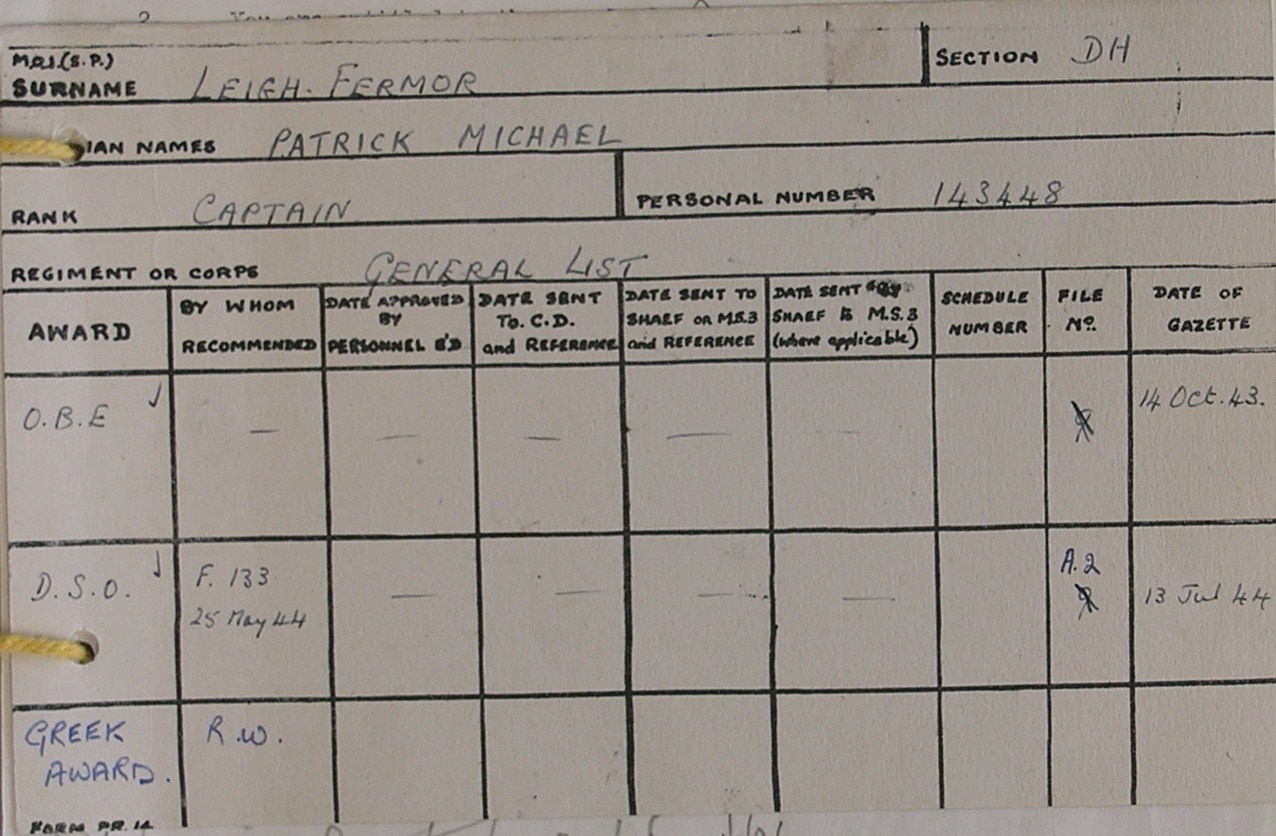 M.O.1.(S.P.)
SURNAME LEIGH-FERMOR SECTION DH
IAN NAMES PATRICK MICHAEL
RANK CAPTAIN PERSONAL NUMBER 143448
REGIMENT OR CORPS GENERAL LIST
AWARD
BY WHOM
RECOMMENDED
DATE APPROVED
BY
PERSONNEL B'D
DATE SENT
To. C.D.
and REFERENCE
DATE SENT TO
SHAEF OR M.S.3
and REFERENCE
DATE SENT BY
SHAEF to M.S.3
(where applicable)
SCHEDULE
NUMBER
FILE
No.
DATE OF
GAZETTE
O.B.E ✓ — — — — — 14 Oct. 43.
D.S.O. ✓ F. 133
25 May 44 — — — — A.2 13 Jul 44
GREEK
AWARD. R.W.
FORM PR.14